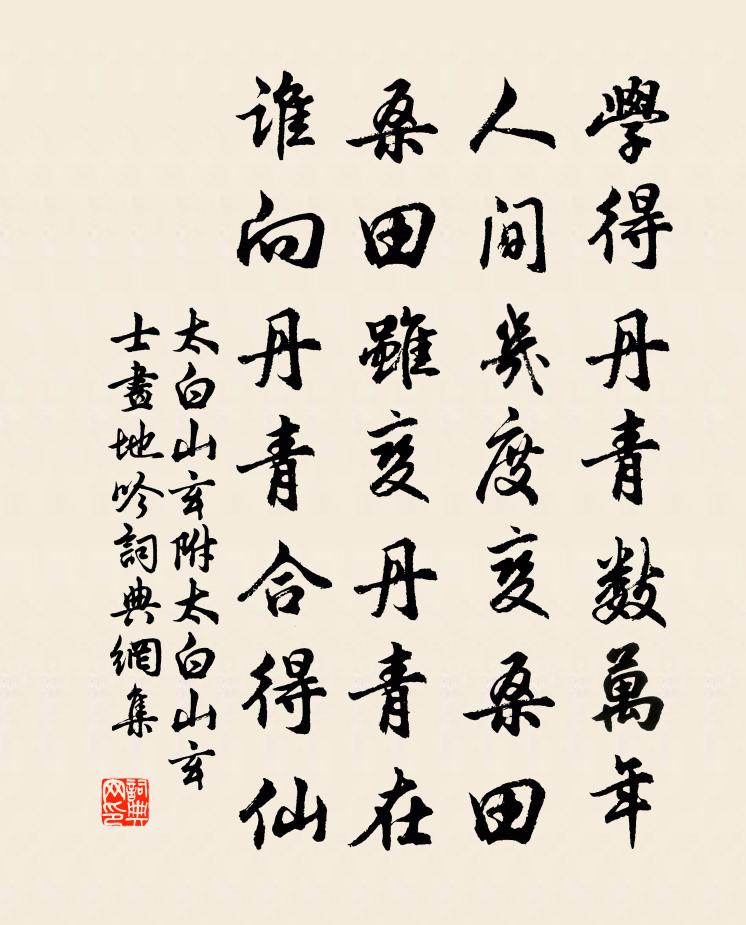 學得丹青數萬年
人間幾度變桑田
桑田雖變丹青在
誰向丹青合得仙
太白山玄附太白山玄
士畫地吟詞典網集
詞典网印